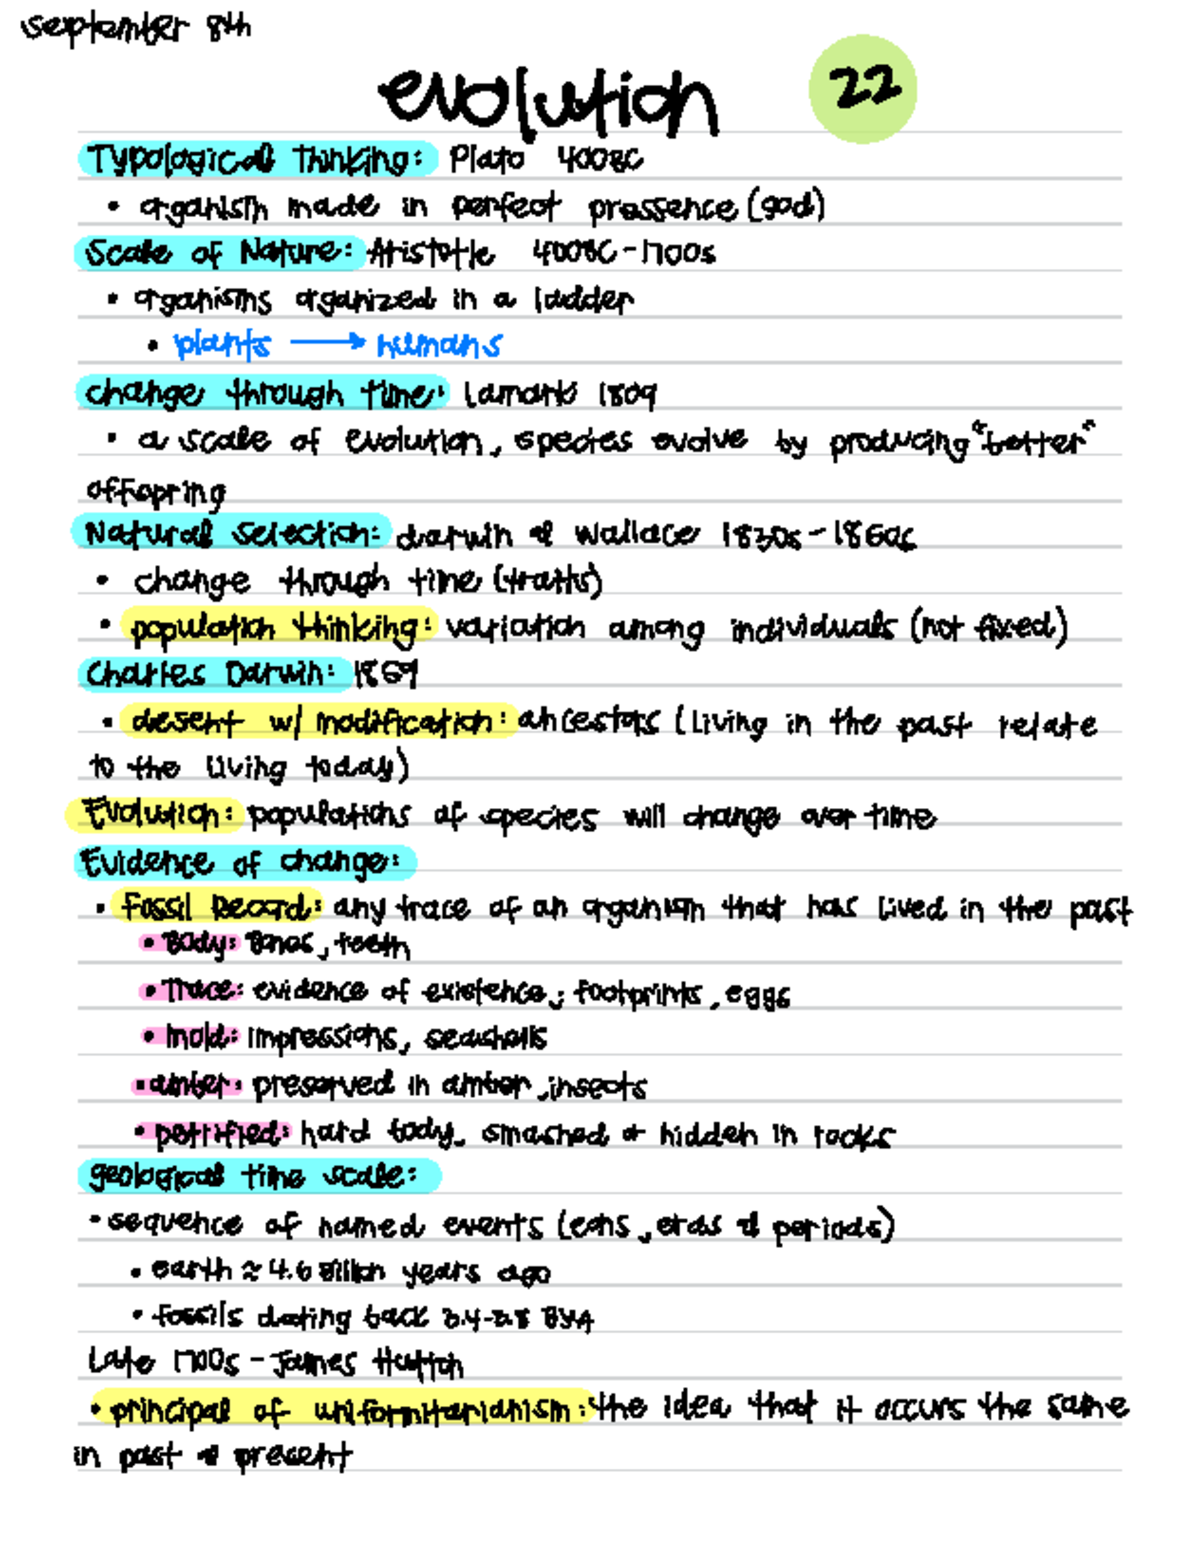 september 8th
evolution 22
Typological Thinking: Plato 400BC
• organism made in perfect pressence (god)
Scale of Nature: Aristotle 400BC-1700s
• organisms organized in a ladder
• plants → humans
change through time: Lamark 1809
• a scale of evolution, species evolve by producing "better"
offspring
Natural Selection: darwin & Wallace 1830s-1860s
• change through time (traits)
• population thinking: variation among individuals (not fixed)
Charles Darwin: 1859
• desent w/ modification: ancestors (living in the past relate
to the living today)
Evolution: populations of species will change over time
Evidence of change:
• fossil Record: any trace of an organism that has lived in the past
• Body: Bones, teeth
• Trace: evidence of existence; footprints, eggs
• mold: impressions, seashells
• amber: preserved in amber, insects
• petrified: hard body, smashed or hidden in rocks
geological time scale:
• sequence of named events (eons, eras & periods)
• earth ≈ 4.6 Billion years ago
• fossils dating back BYA
Late 1700s - James Hutton
• principal of uniformitarianism: the idea that it occurs the same
in past & present